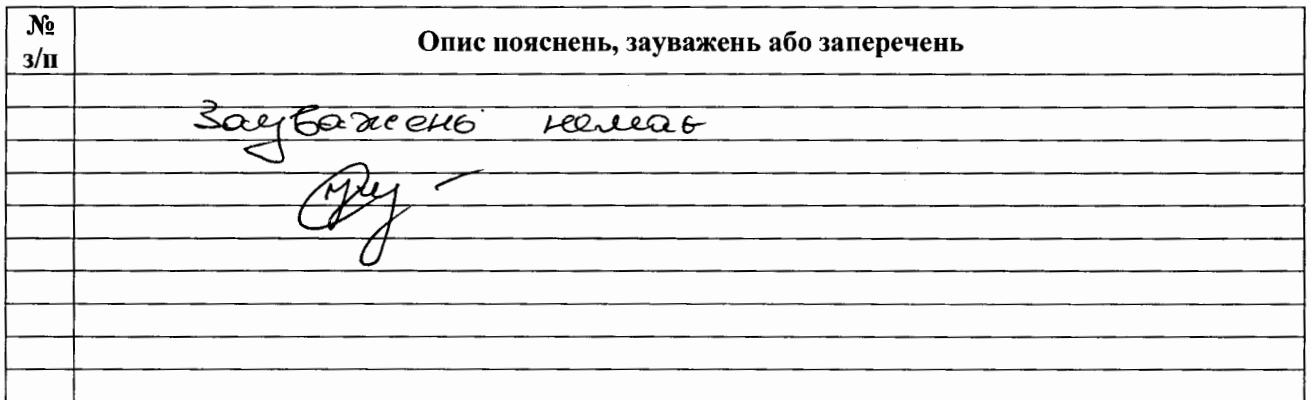 № з/п
Опис пояснень, зауважень або заперечень
Зауважень немає